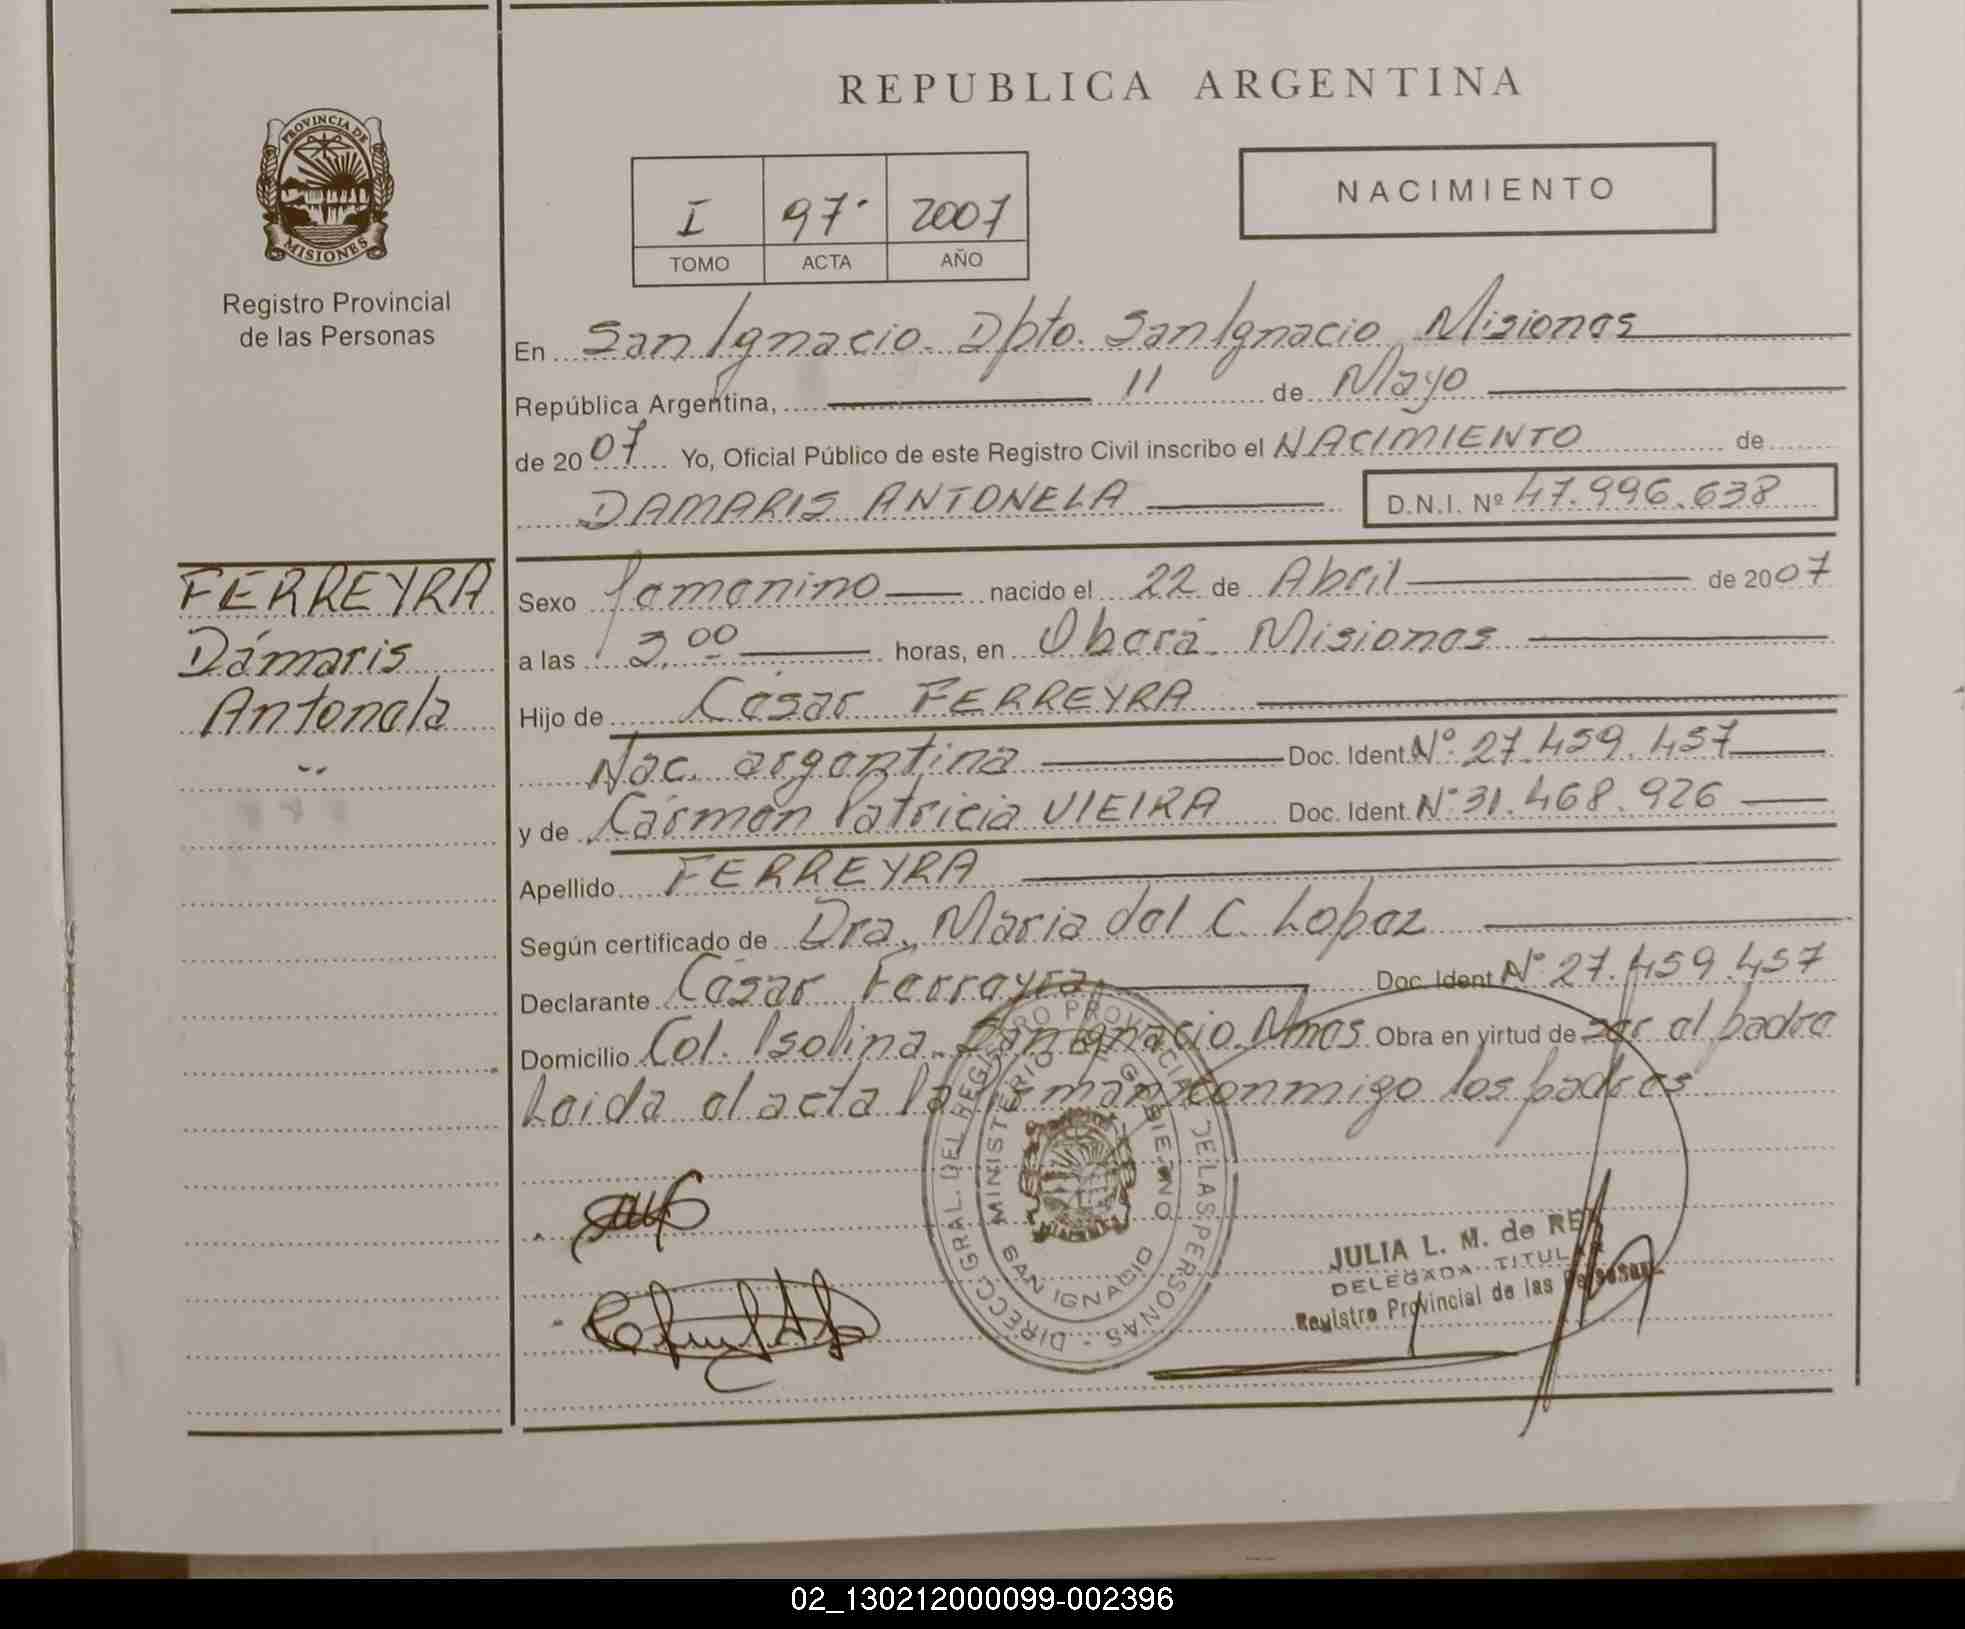 REPUBLICA ARGENTINA
PROVINCIA DE
MISIONES
Registro Provincial
de las Personas
I 97 2007
TOMO ACTA AÑO
NACIMIENTO
En San Ignacio. Dpto. San Ignacio Misiones
República Argentina, 11 de Mayo
de 2007 Yo, Oficial Público de este Registro Civil inscribo el NACIMIENTO de
DAMARIS ANTONELA D.N.I. Nº 47.996.638
FERREYRA
Dámaris
Antonela
Sexo femenino nacido el 22 de Abril de 2007
a las 3,00 horas, en Oberá Misiones
Hijo de César FERREYRA
Nac. argentina Doc. Ident. Nº 27.459.457
y de Cármen Patricia VIEIRA Doc. Ident. Nº 31.468.926
Apellido FERREYRA
Según certificado de Dra. Maria del C. Lopez
Declarante César Ferreyra Doc. Ident Nº 27.459.457
Domicilio Col. Isolina. San Ignacio. Mnes. Obra en virtud de ser el padre
Leida el acta la firman conmigo los padres
DIRECC. GRAL. DEL REGISTRO PROVINCIAL DE LAS PERSONAS
MINISTERIO DE GOBIERNO
SAN IGNACIO
JULIA L. M. de
DELEGADA TITULAR
Registro Provincial de las Personas
02_130212000099-002396